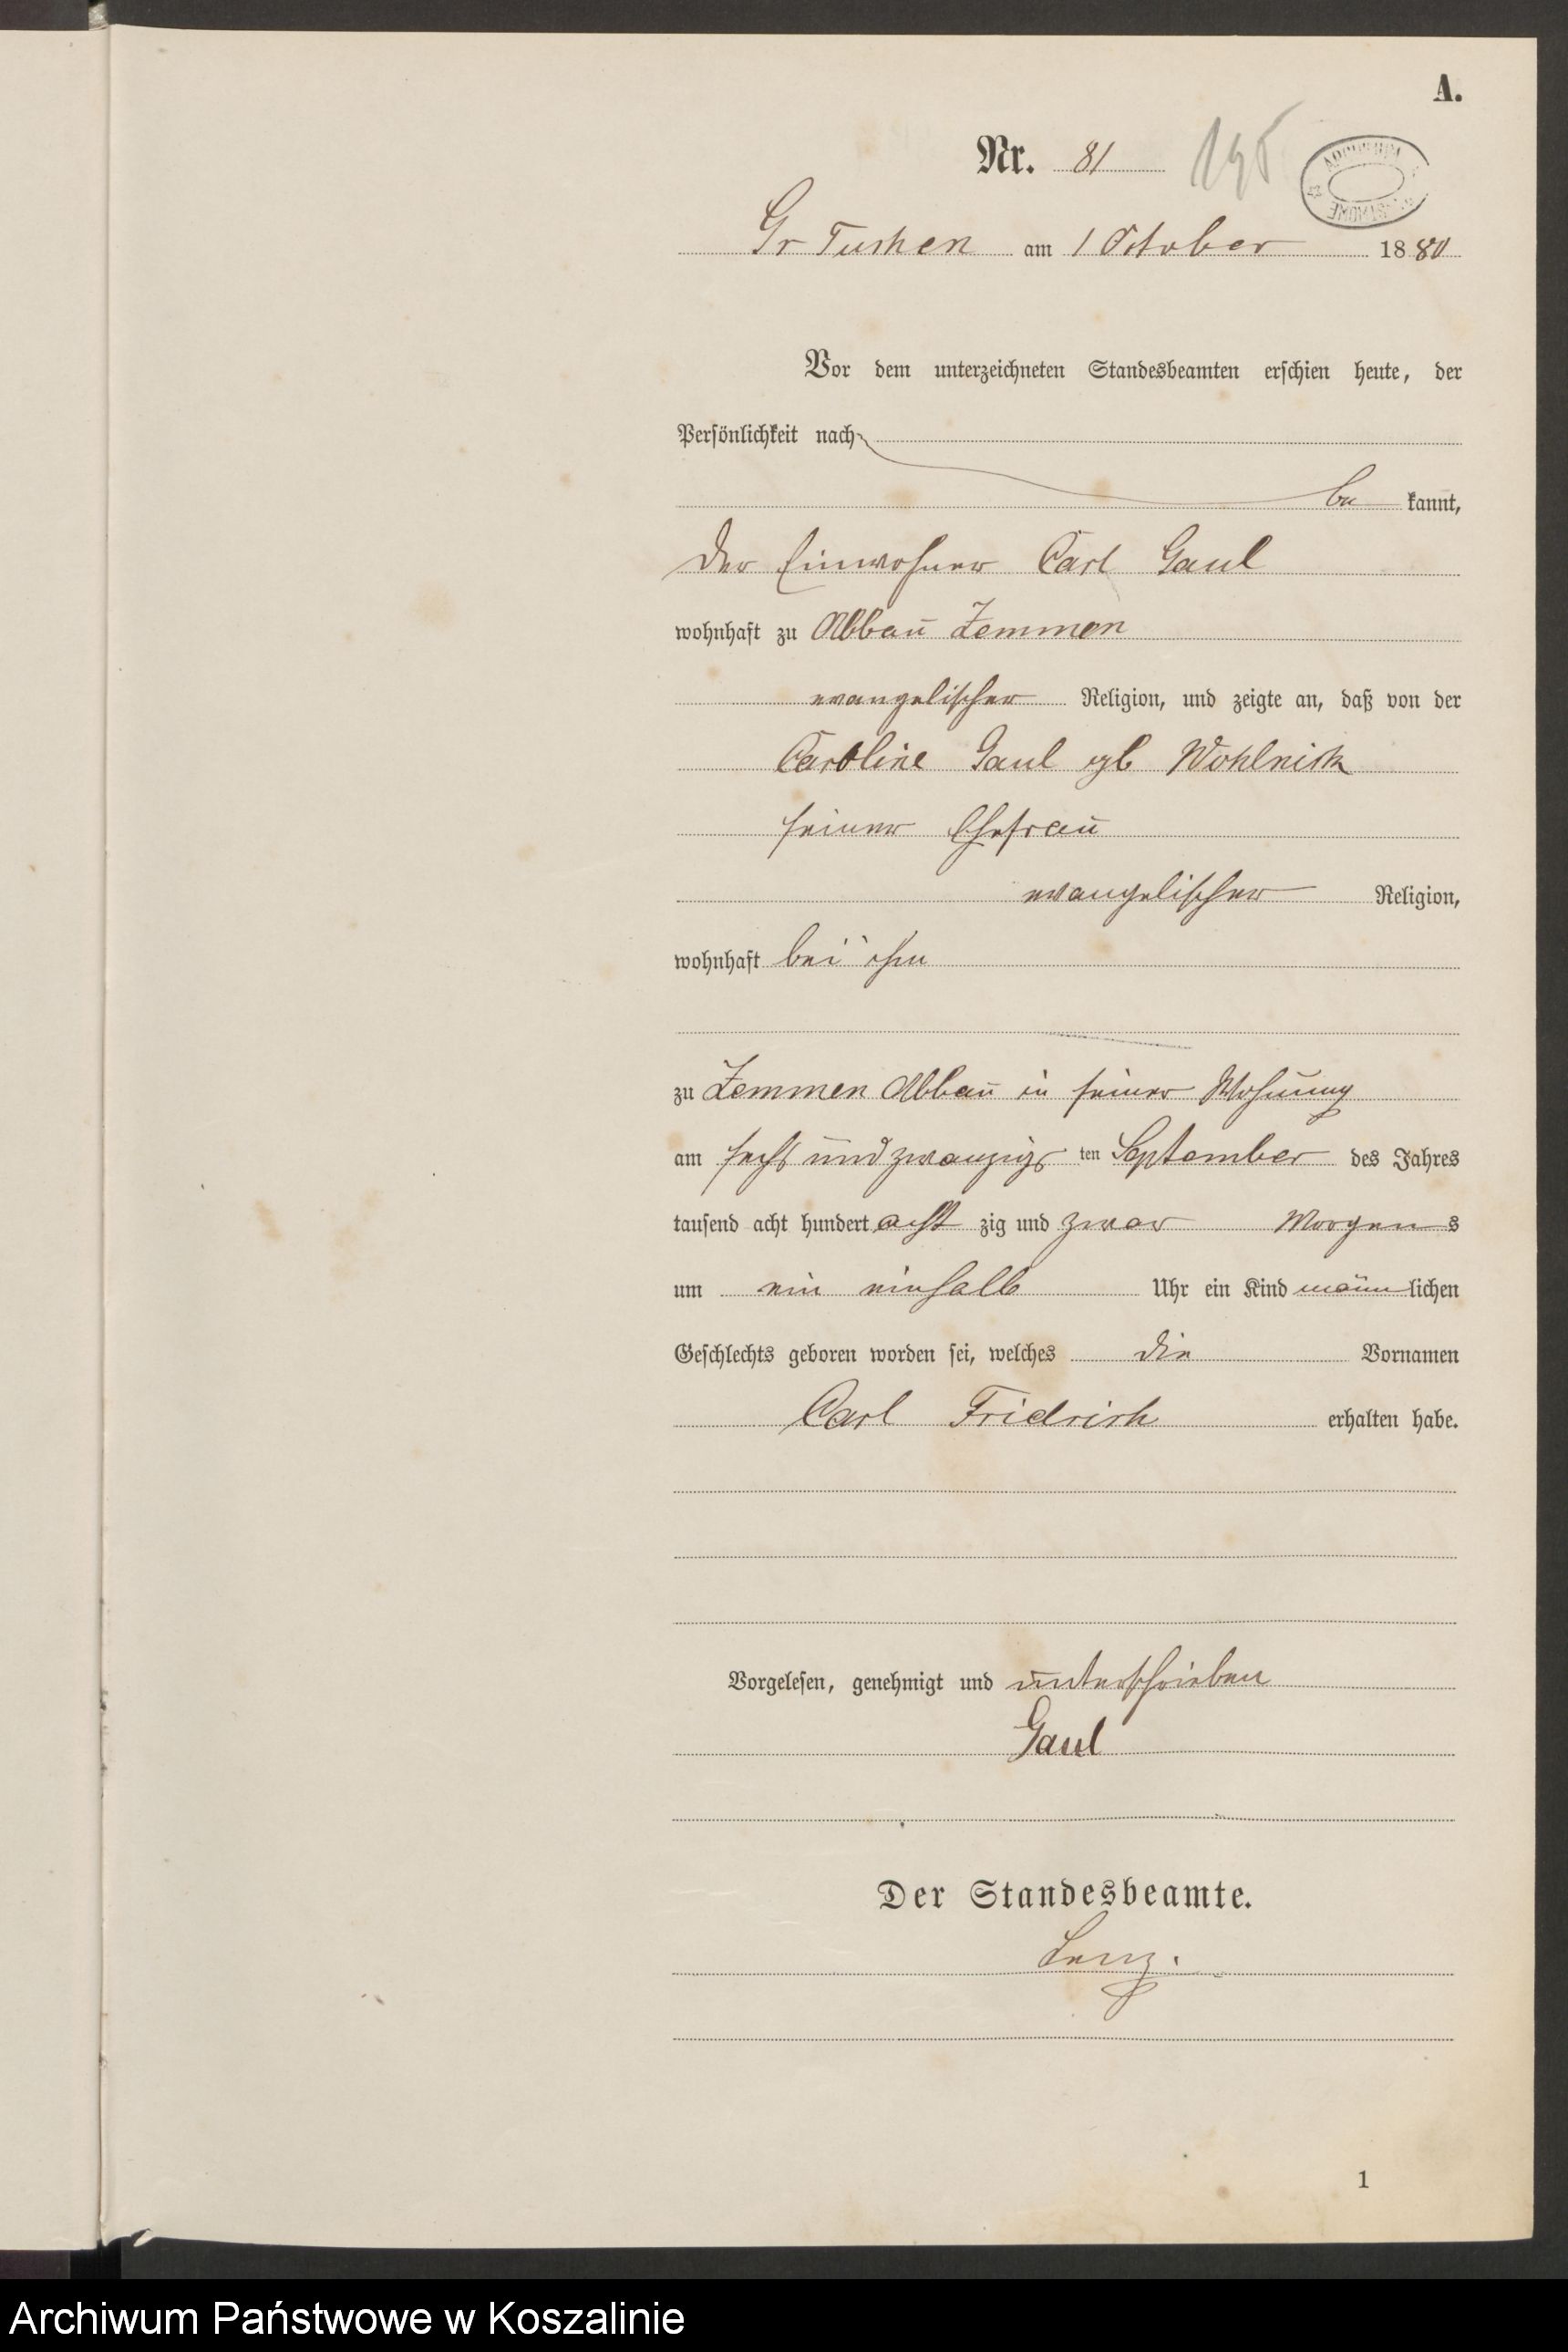 A.
Nr. 81 195
Gr Tuchen am 1 October 1880
Vor dem unterzeichneten Standesbeamten erschien heute, der
Persönlichkeit nach
be kannt,
der Einwohner Carl Gaul
wohnhaft zu Abbau Zemmen
evangelischer Religion, und zeigte an, daß von der
Caroline Gaul gb Wohlnick
seiner Ehefrau
evangelischer Religion,
wohnhaft bei ihm
zu Zemmen Abbau in seiner Wohnung
am sechs und zwanzigs ten September des Jahres
tausend acht hundert acht zig und zwar Morgen s
um ein einhalb Uhr ein Kind männ lichen
Geschlechts geboren worden sei, welches die Vornamen
Carl Fridrich erhalten habe.
Vorgelesen, genehmigt und unterschrieben
Gaul
Der Standesbeamte.
Lenz.
1
Archiwum Państwowe w Koszalinie